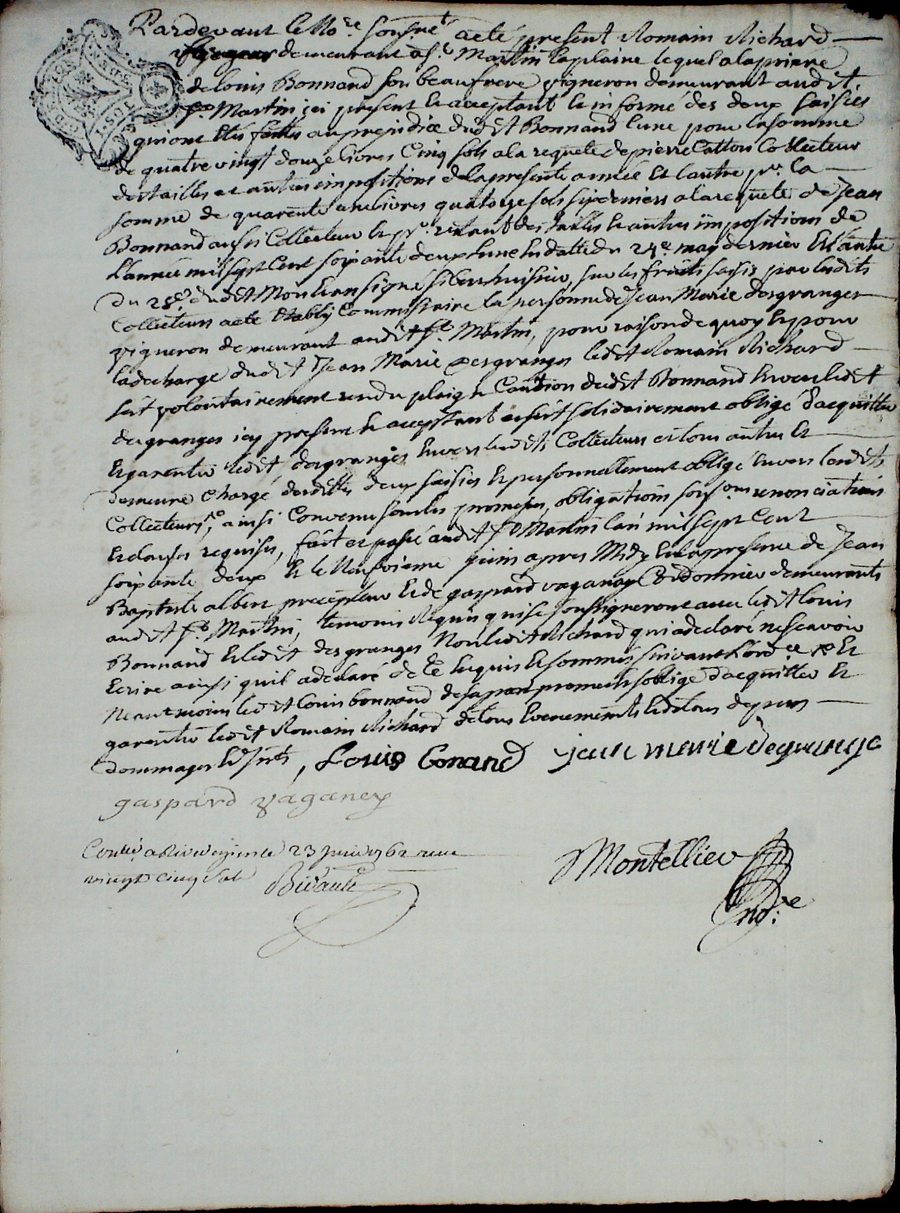 Pardevant le No.re soussné acté présent Romain Richard
demeurant a St Martin la plaine lequel a la priere
de louis Bonnand son beaufrere vigneron demeurant audit
St. Martin, icy present et acceptant le informé des deux saisies
qui ont etés faites au prejudice dudit Bonnand l'une pour la somme
de quatre vingt douze livres Cinq sols a la requete de pierre Catton Collecteur
des tailles et autres impositions de la presente année Et l'autre pr. la
somme de quarente livres quatorze sols six deniers a la requete de Jean
Bonnand aussi Collecteur des tailles et autres impositions de
l'année mil sept Cent soixante deux l'une en datte du 24e. may dernier Et l'autre
du 25e. dudit Mois huissier, sur les fruits saisis par lesdits
Collecteurs a eté Etably Commissaire la personne de Jean Marie desgranges
vigneron demeurant audit St. Martin, pour raison de quoy Et pour
la decharge dudit Jean Marie desgranges ledit Romain Richard
s'est volontairement rendu pleige et Caution dudit Bonnand Envers ledit
desgranges icy present et acceptant et s'est solidairement obligé d'acquitter
Et garentir ledit desgranges Envers lesdits Collecteurs et tous autres Et
demeure Chargé desdittes deux saisies Et personnellement obligé Envers lesdits
Collecteurs, ainsi Convenu sous les promesses, obligations, soumons renonciations
Et clauses requises, fait et passé audit St Martin l'an mil sept Cent
soixante deux Et le Neufvieme juin apres Midy En la presence de Jean
Baptiste albert precepteur Et de gaspard vaganay Cordonnier demeurants
audit St. Martin, temoins requis qui se soussigneront avec ledit louis
Bonnand Et ledit desgranges Non ledit Richard qui a declaré ne scavoir
Ecrire ainsi qu'il a declaré de ce Enquis Et sommé suivant l'ordce. Et
Neantmoins ledit louis bonnand de sa part promet s'oblige d'acquitter Et
garentir ledit Romain Richard de tous Evenements Et de tous depens
dommages Et Ints, Louis bonand jean marie degrange
gaspard vaganey
Conlé. a Rivedegier le 23 juin 1762 reçu
vingt cinq sols
Montellier
no.re